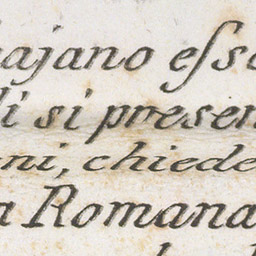 ajano eſsa
li si presen
ni, chiede
a Romana